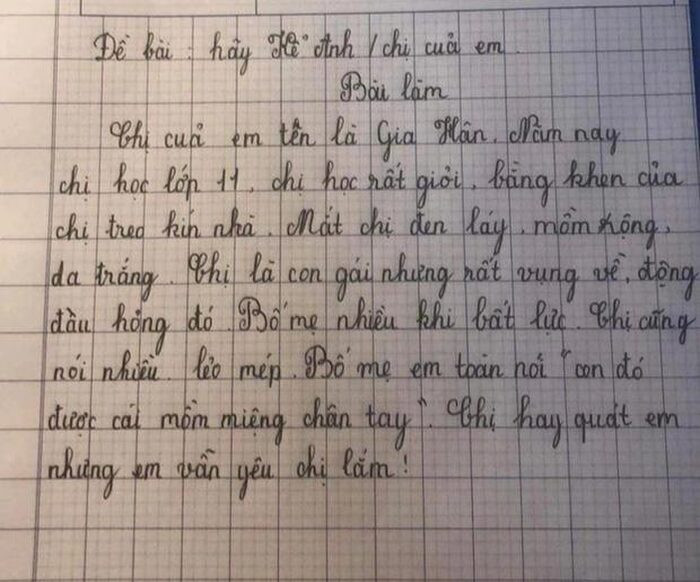 Đề bài : hãy kể Anh / chị cuả em
Bài làm
Chị cuả em tên là Gia Hân. Năm nay
chị học lớp 11, chị học rất giỏi, bằng khen của
chị treo kín nhà. Mắt chị đen láy, mồm rộng,
da trắng. Chị là con gái nhưng rất vụng về, động
đâu hỏng đó. Bố mẹ nhiều khi bất lực. Chị cũng
nói nhiều, lẻo mép. Bố mẹ em toàn nói "con đó
được cái mồm miệng chân tay". Chị hay quát em
nhưng em vẫn yêu chị lắm!